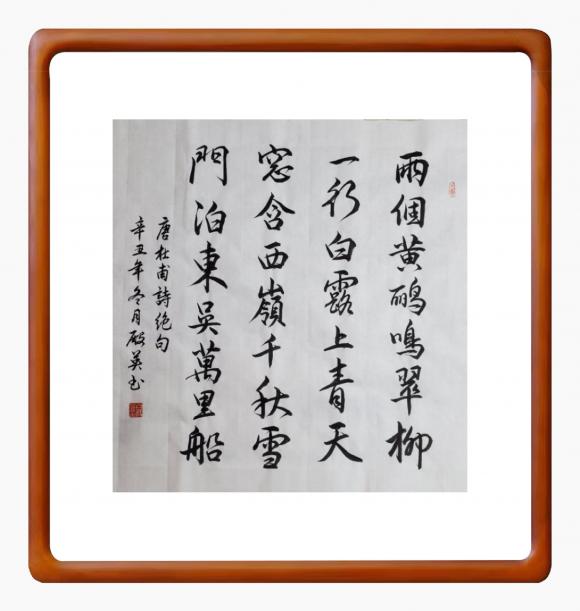 兩個黄鹂鳴翠柳
一行白露上青天
窓含西嶺千秋雪
門泊東吳萬里船
唐杜甫詩绝句
辛丑年冬月殷英书